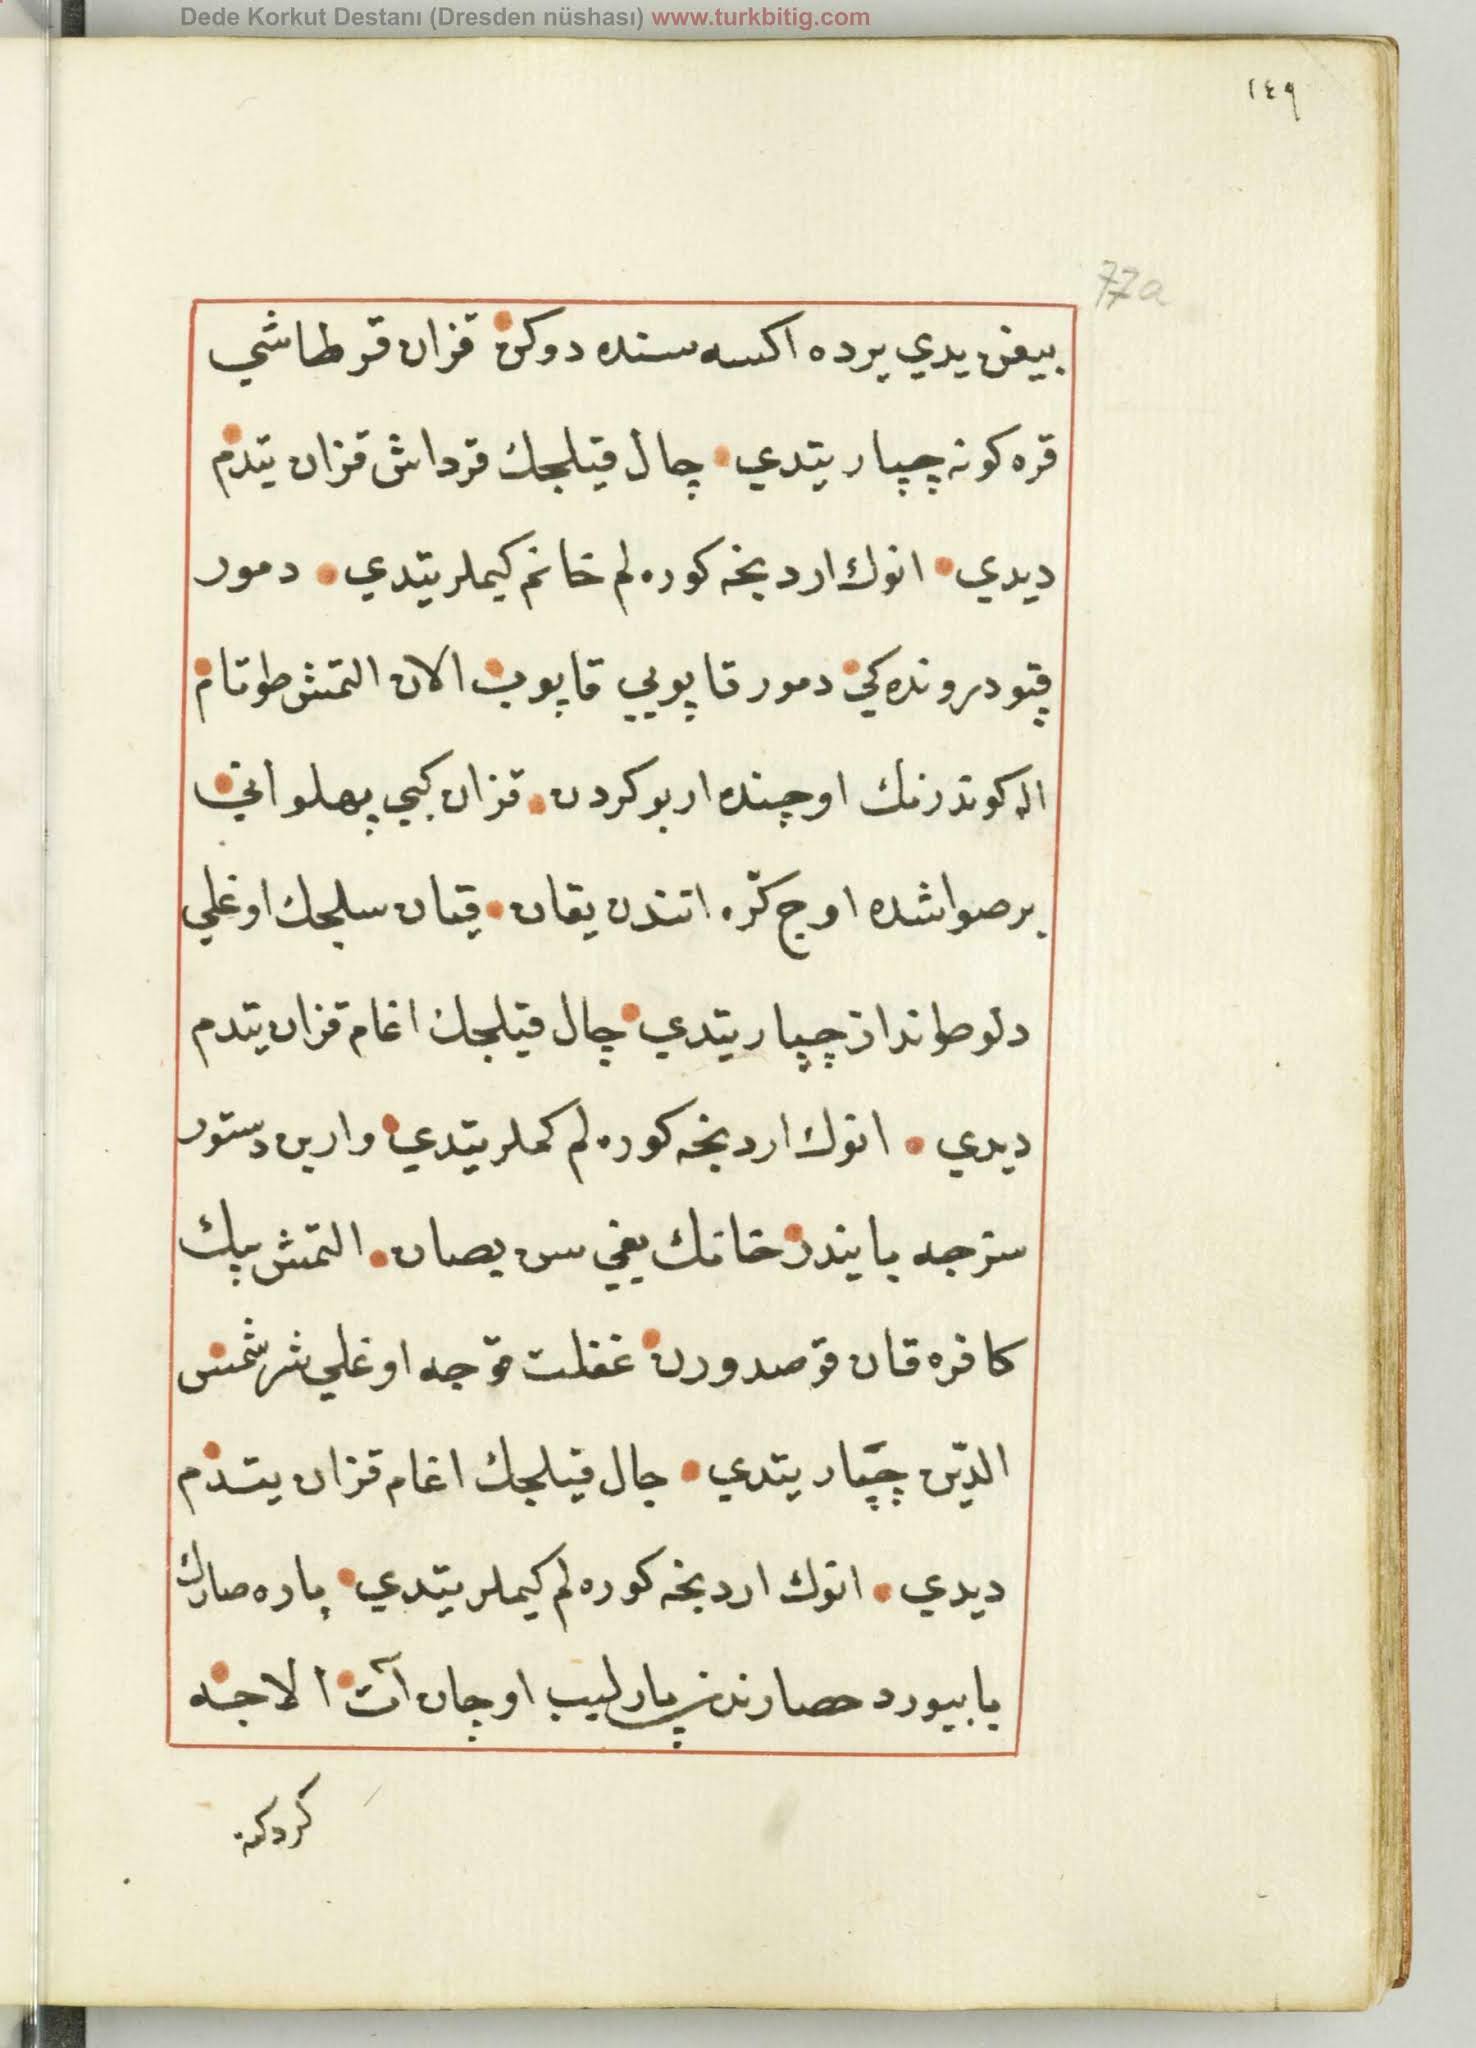 Dede Korkut Destanı (Dresden nüshası) www.turkbitig.com
١٤٩
77a
بيغن يدي يرده اكسه سنده دوكن قزان قرطاشي
قره كونه چپار يتدي چال قيلجك قرداش قزان يتدم
ديدي انوك اردنجه كوره لم خانم كيملر يتدي دمور
قپو دروندەكي دمور قاپويي قاپوب الان التمش طوتام
اله كوندرنك اوچنده ار بوكردن قزان كبي پهلواني
بر صواشده اوج كره اتندن يقان قيان سلجك اوغلي
دلو طوندار چپار يتدي چال قيلجك اغام قزان يتدم
ديدي انوك اردنجه كوره لم كملر يتدي وارين دستور
سزجه بايندر خانك يغي سن بصان التمش بيك
كافره قان قوصدورن غفلت قوجه اوغلي شر شمس
الدين چپار يتدي جال قيلجك اغام قزان يتدم
ديدي انوك اردنجه كوره لم كيملر يتدي پاره صارك
يابيورد حصارندن پارليب اوچان آت الاجه
كردكنه